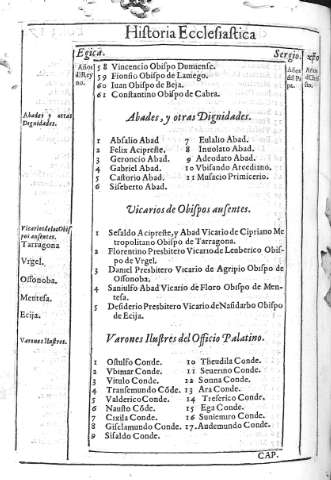 Historia Ecclesiastica
Egica. Sergio. xp̄o
Años d'Reyno. Años del Pa.
58 Vincencio Obispo Dumiense.
59 Fionsio Obispo de Lamego.
60 Iuan Obispo de Beja.
61 Constantino Obispo de Cabra.
Abades y otras Dignidades.
Abades, y otras Dignidades.
1 Absalio Abad
2 Felix Acipreste.
3 Geroncio Abad.
4 Gabriel Abad.
5 Castorio Abad.
6 Siseberto Abad.
7 Eulalio Abad.
8 Inuolato Abad.
9 Adeodato Abad.
10 Vbisando Arcediano.
11 Musacio Primicerio.
Vicarios de Obispos ausentes.
Vicarios de los Obispos ausentes.
Tarragona
Vrgel.
Ossonoba.
Mentesa.
Ecija.
1 Sesaldo Acipreste, y Abad Vicario de Cipriano Me
tropolitano Obispo de Tarragona.
2 Florentino Presbitero Vicario de Leuberico Obis-
po de Vrgel.
3 Daniel Presbitero Vicario de Agripio Obispo de
Ossonoba.
4 Saniulfo Abad Vicario de Floro Obispo de Men-
tesa.
5 Desiderio Presbitero Vicario de Nasidarbo Obispo
de Ecija.
Varones Ilustres.
Varones Ilustres del Officio Palatino.
1 Ostulfo Conde.
2 Vbimar Conde.
3 Vitulo Conde.
4 Transemundo Cõde.
5 Valderico Conde.
6 Nausto Cõde.
7 Cixila Conde.
8 Gisclamundo Conde.
9 Sisaldo Conde.
10 Theudila Conde.
11 Seuerino Conde.
12 Sonna Conde.
13 Ara Conde.
14 Treserico Conde.
15 Ega Conde.
16 Suniemiro Conde.
17. Audemundo Conde.
CAP.